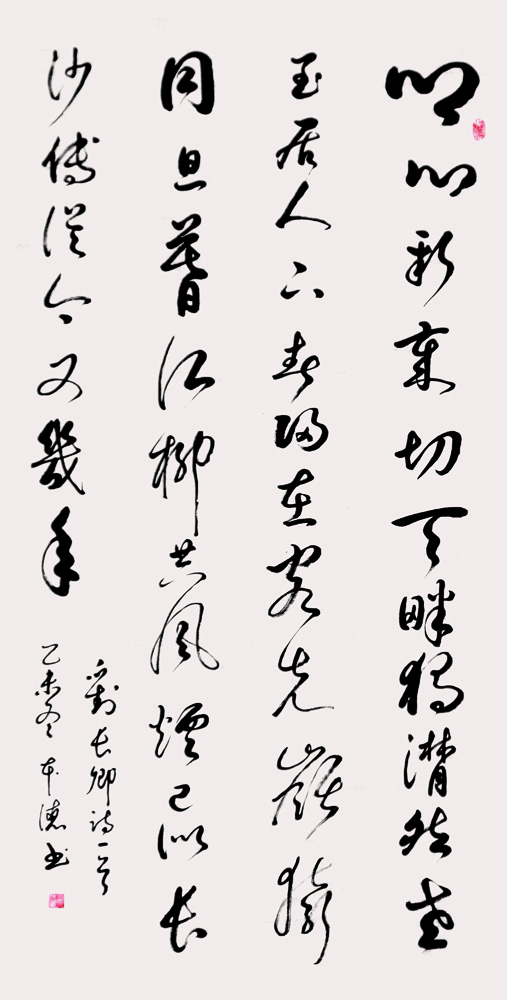 鄉心新歲切天畔獨潸然老
至居人下春歸在客先嶺猿
同旦暮江柳共風煙已似長
沙傅從今又幾年
劉長卿詩一首
乙未冬本德書